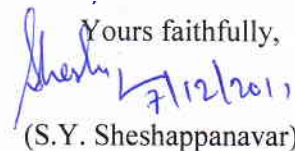 Yours faithfully,
7/12/2011
(S.Y. Sheshappanavar)